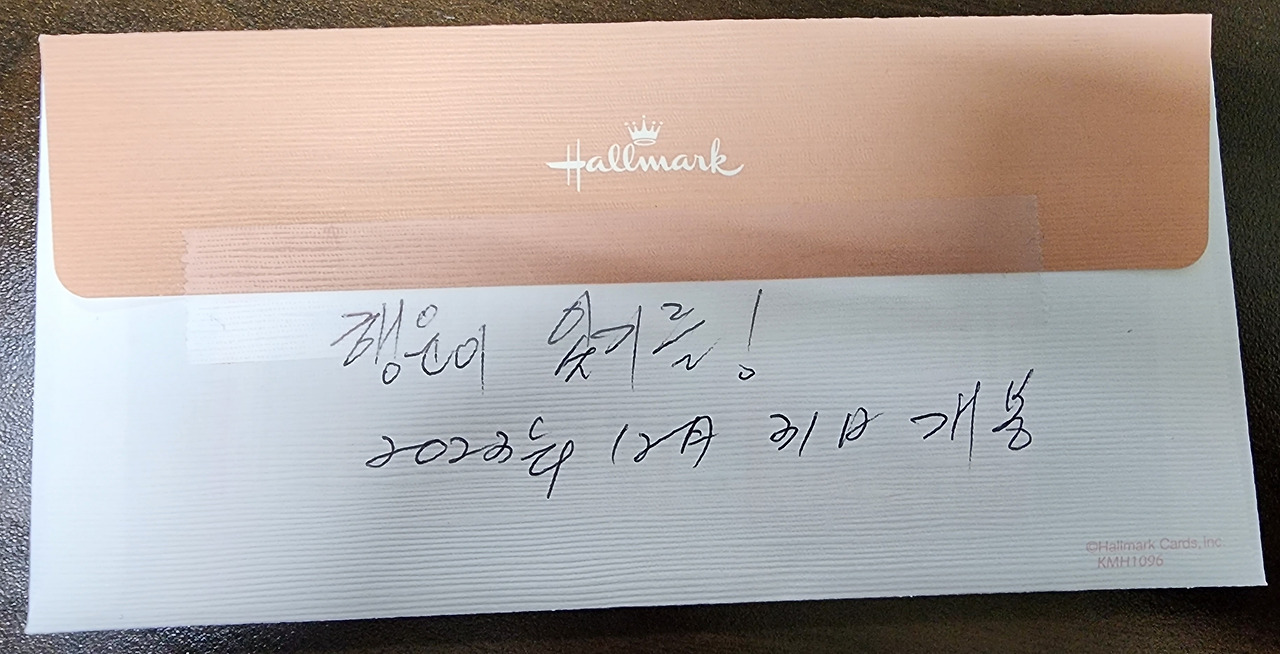 Hallmark
행운이 있기를!
2023年 12月 31日 개봉
©Hallmark Cards, Inc.
KMH1096